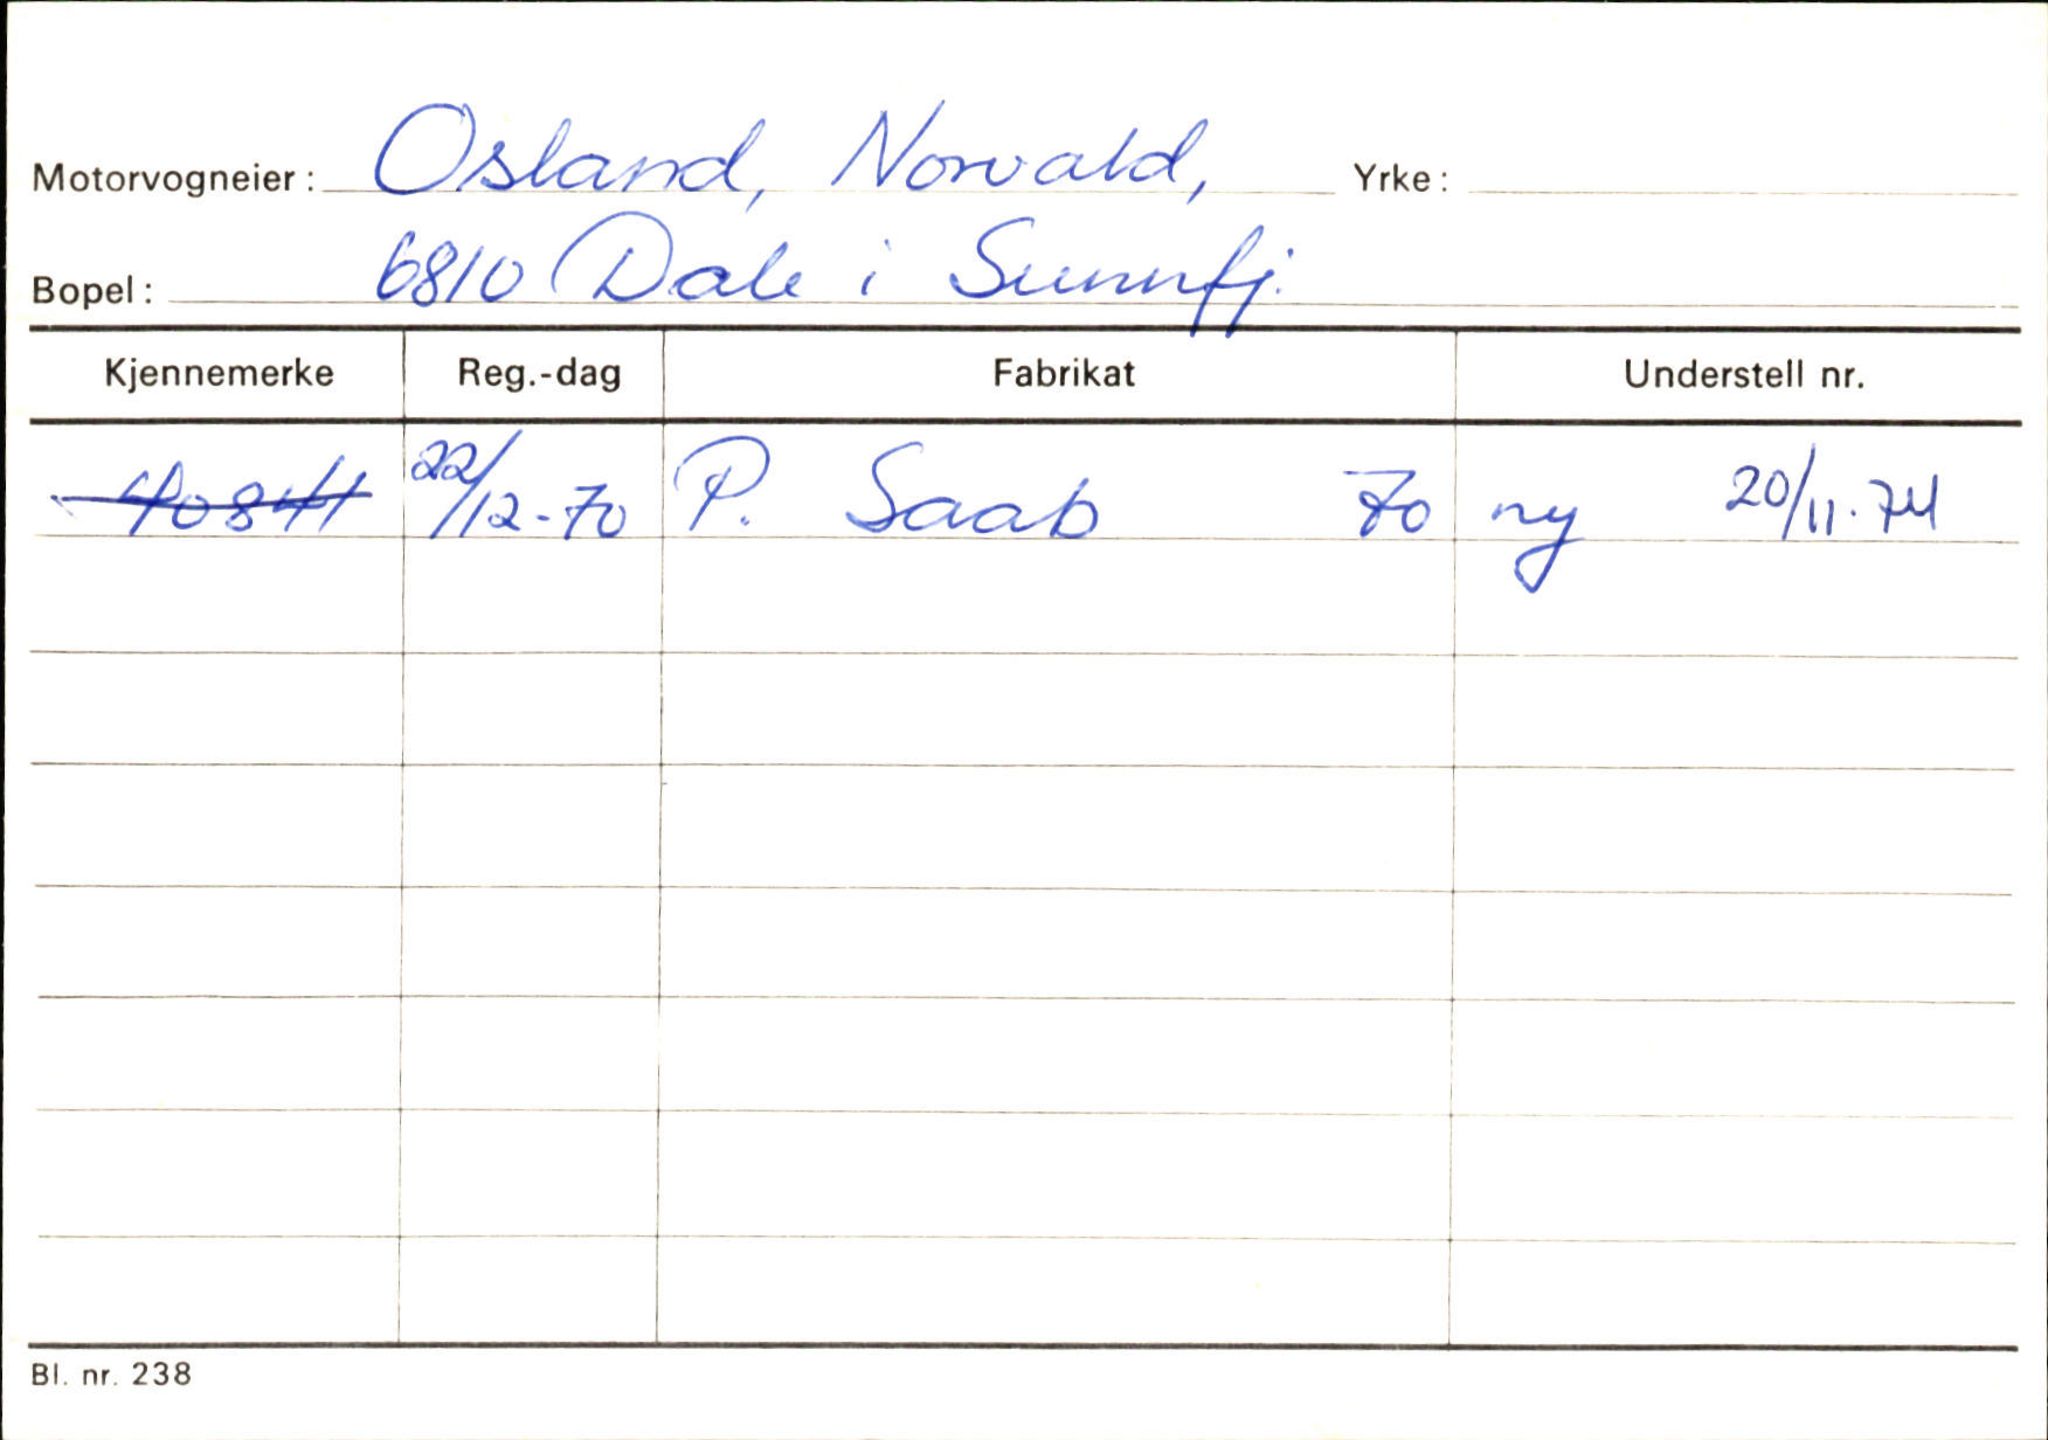 Motorvogneier: Osland, Norvald, Yrke:
Bopel: 6810 Dale i Sunnfj.
Kjennemerke Reg.-dag Fabrikat Understell nr.
40841 22/12-70 P. Saab 70 ny 20/11.74
Bl. nr. 238